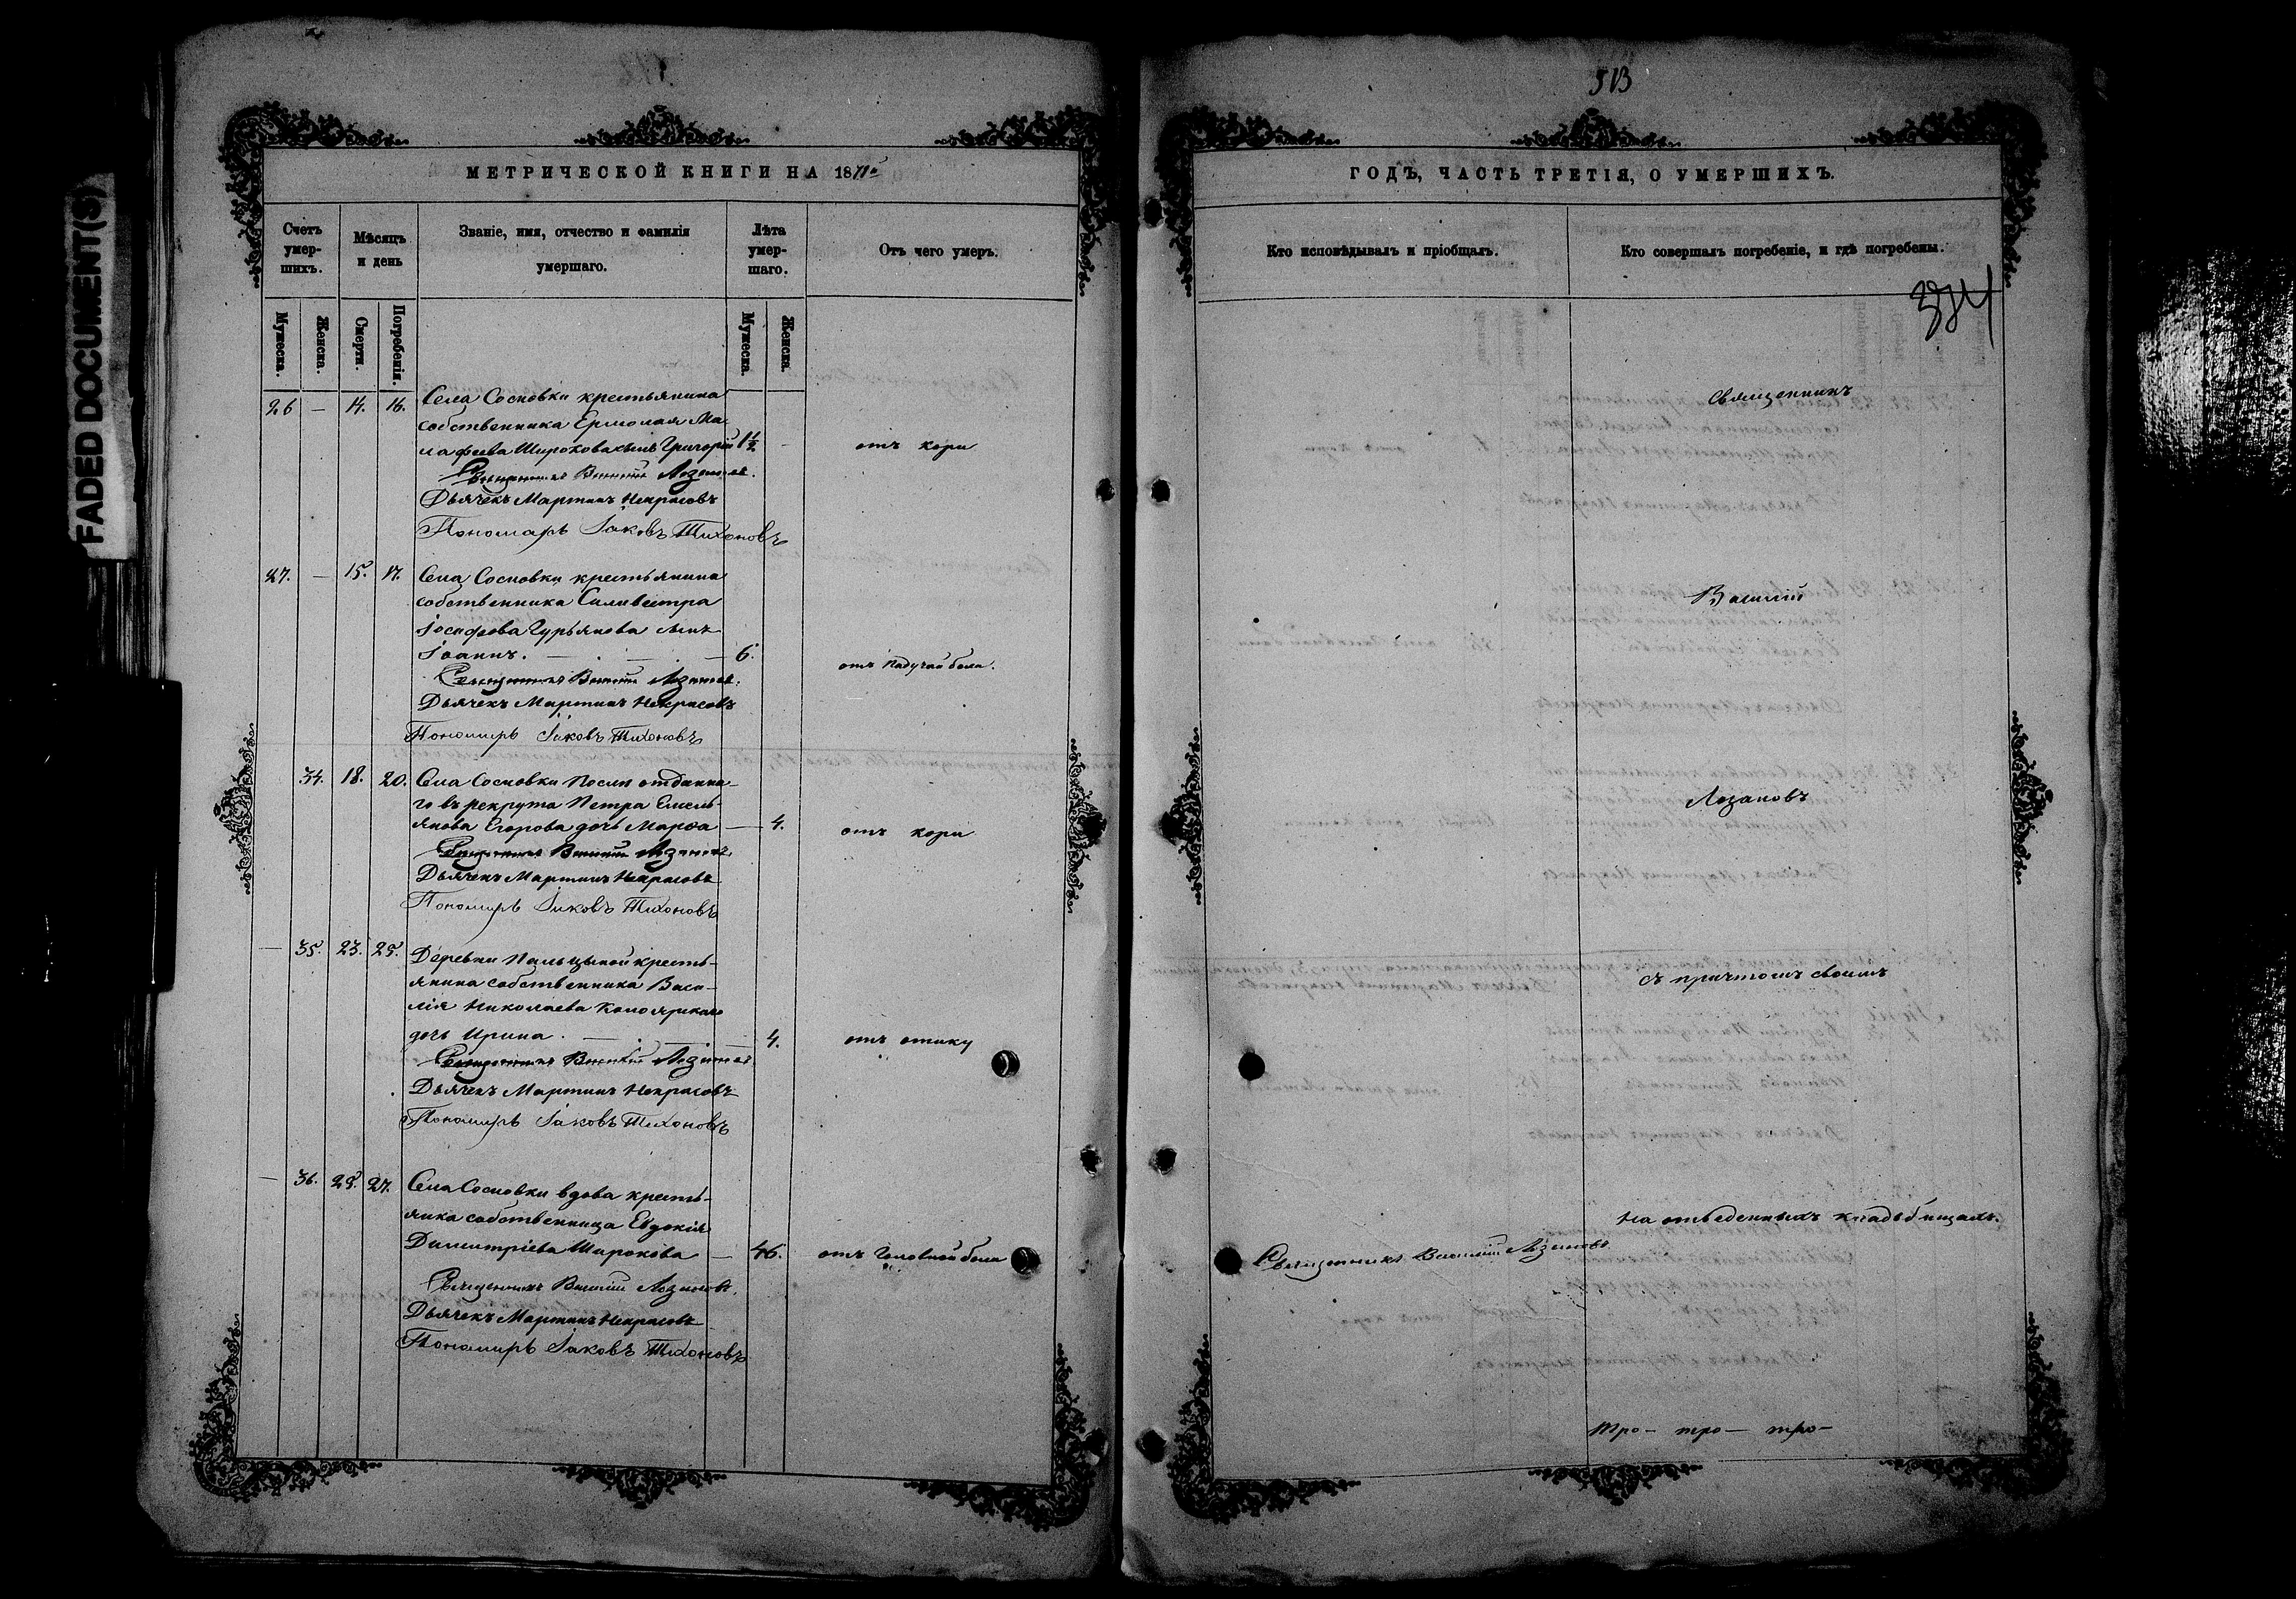 FADED DOCUMENT(S)
МЕТРИЧЕСКОЙ КНИГИ НА 1871й
Счетъ умер-шихъ.
Мѣсяцъ и день
Званіе, имя, отчество и фамилія умершаго.
Лѣта умер-шаго.
Отъ чего умеръ.
Мужеска.
Женска.
Смерти.
Погребенія.
Мужеска.
Женска.
26 — 14. 16. Села Сосновки крестьянина
собственника Ермолая Ма-
лафеева Широкова сынъ Григорій 1½ — отъ кори
Священникъ Василій Лозановъ.
Дьячекъ Мартинъ Некрасовъ
Пономарь Іаковъ Тихоновъ
27. — 15. 17. Села Сосновки крестьянина
собственника Силивестра
Іосифова Гурьянова сынъ
Іоаннъ. — 6. отъ падучай боли.
Священникъ Василій Лозановъ.
Дьячекъ Мартинъ Некрасовъ
Пономарь Іаковъ Тихоновъ
34. 18. 20. Села Сосновки после отданна-
го въ рекрута Петра Емель-
янова Егорова дочь Марѳа — 4. отъ кори
Священникъ Василій Лозановъ.
Дьячекъ Мартинъ Некрасовъ
Пономарь Іаковъ Тихоновъ
— 35. 23. 25. Деревни Пальцыной кресть-
янина собственника Васи-
лія Николаева
дочь Ирина. — 4. отъ
Священникъ Василій Лозановъ
Дьячекъ Мартинъ Некрасовъ
Пономарь Іаковъ Тихоновъ
— 36. 25. 27. Села Сосновки вдова кресть-
янка собственница Евдокія
Димитріева Широкова — 46. отъ головной боли
Священникъ Василій Лозановъ.
Дьячекъ Мартинъ Некрасовъ
Пономарь Іаковъ Тихоновъ
513
ГОДЪ, ЧАСТЬ ТРЕТІЯ, О УМЕРШИХЪ.
Кто исповѣдывалъ и пріобщалъ.
Кто совершалъ погребеніе, и гдѣ погребены.
Священникъ
Василій
Лозановъ
съ причтомъ своимъ
на отведенныхъ кладбищахъ.
Священникъ Василій Лозановъ
тро- тро- тро-